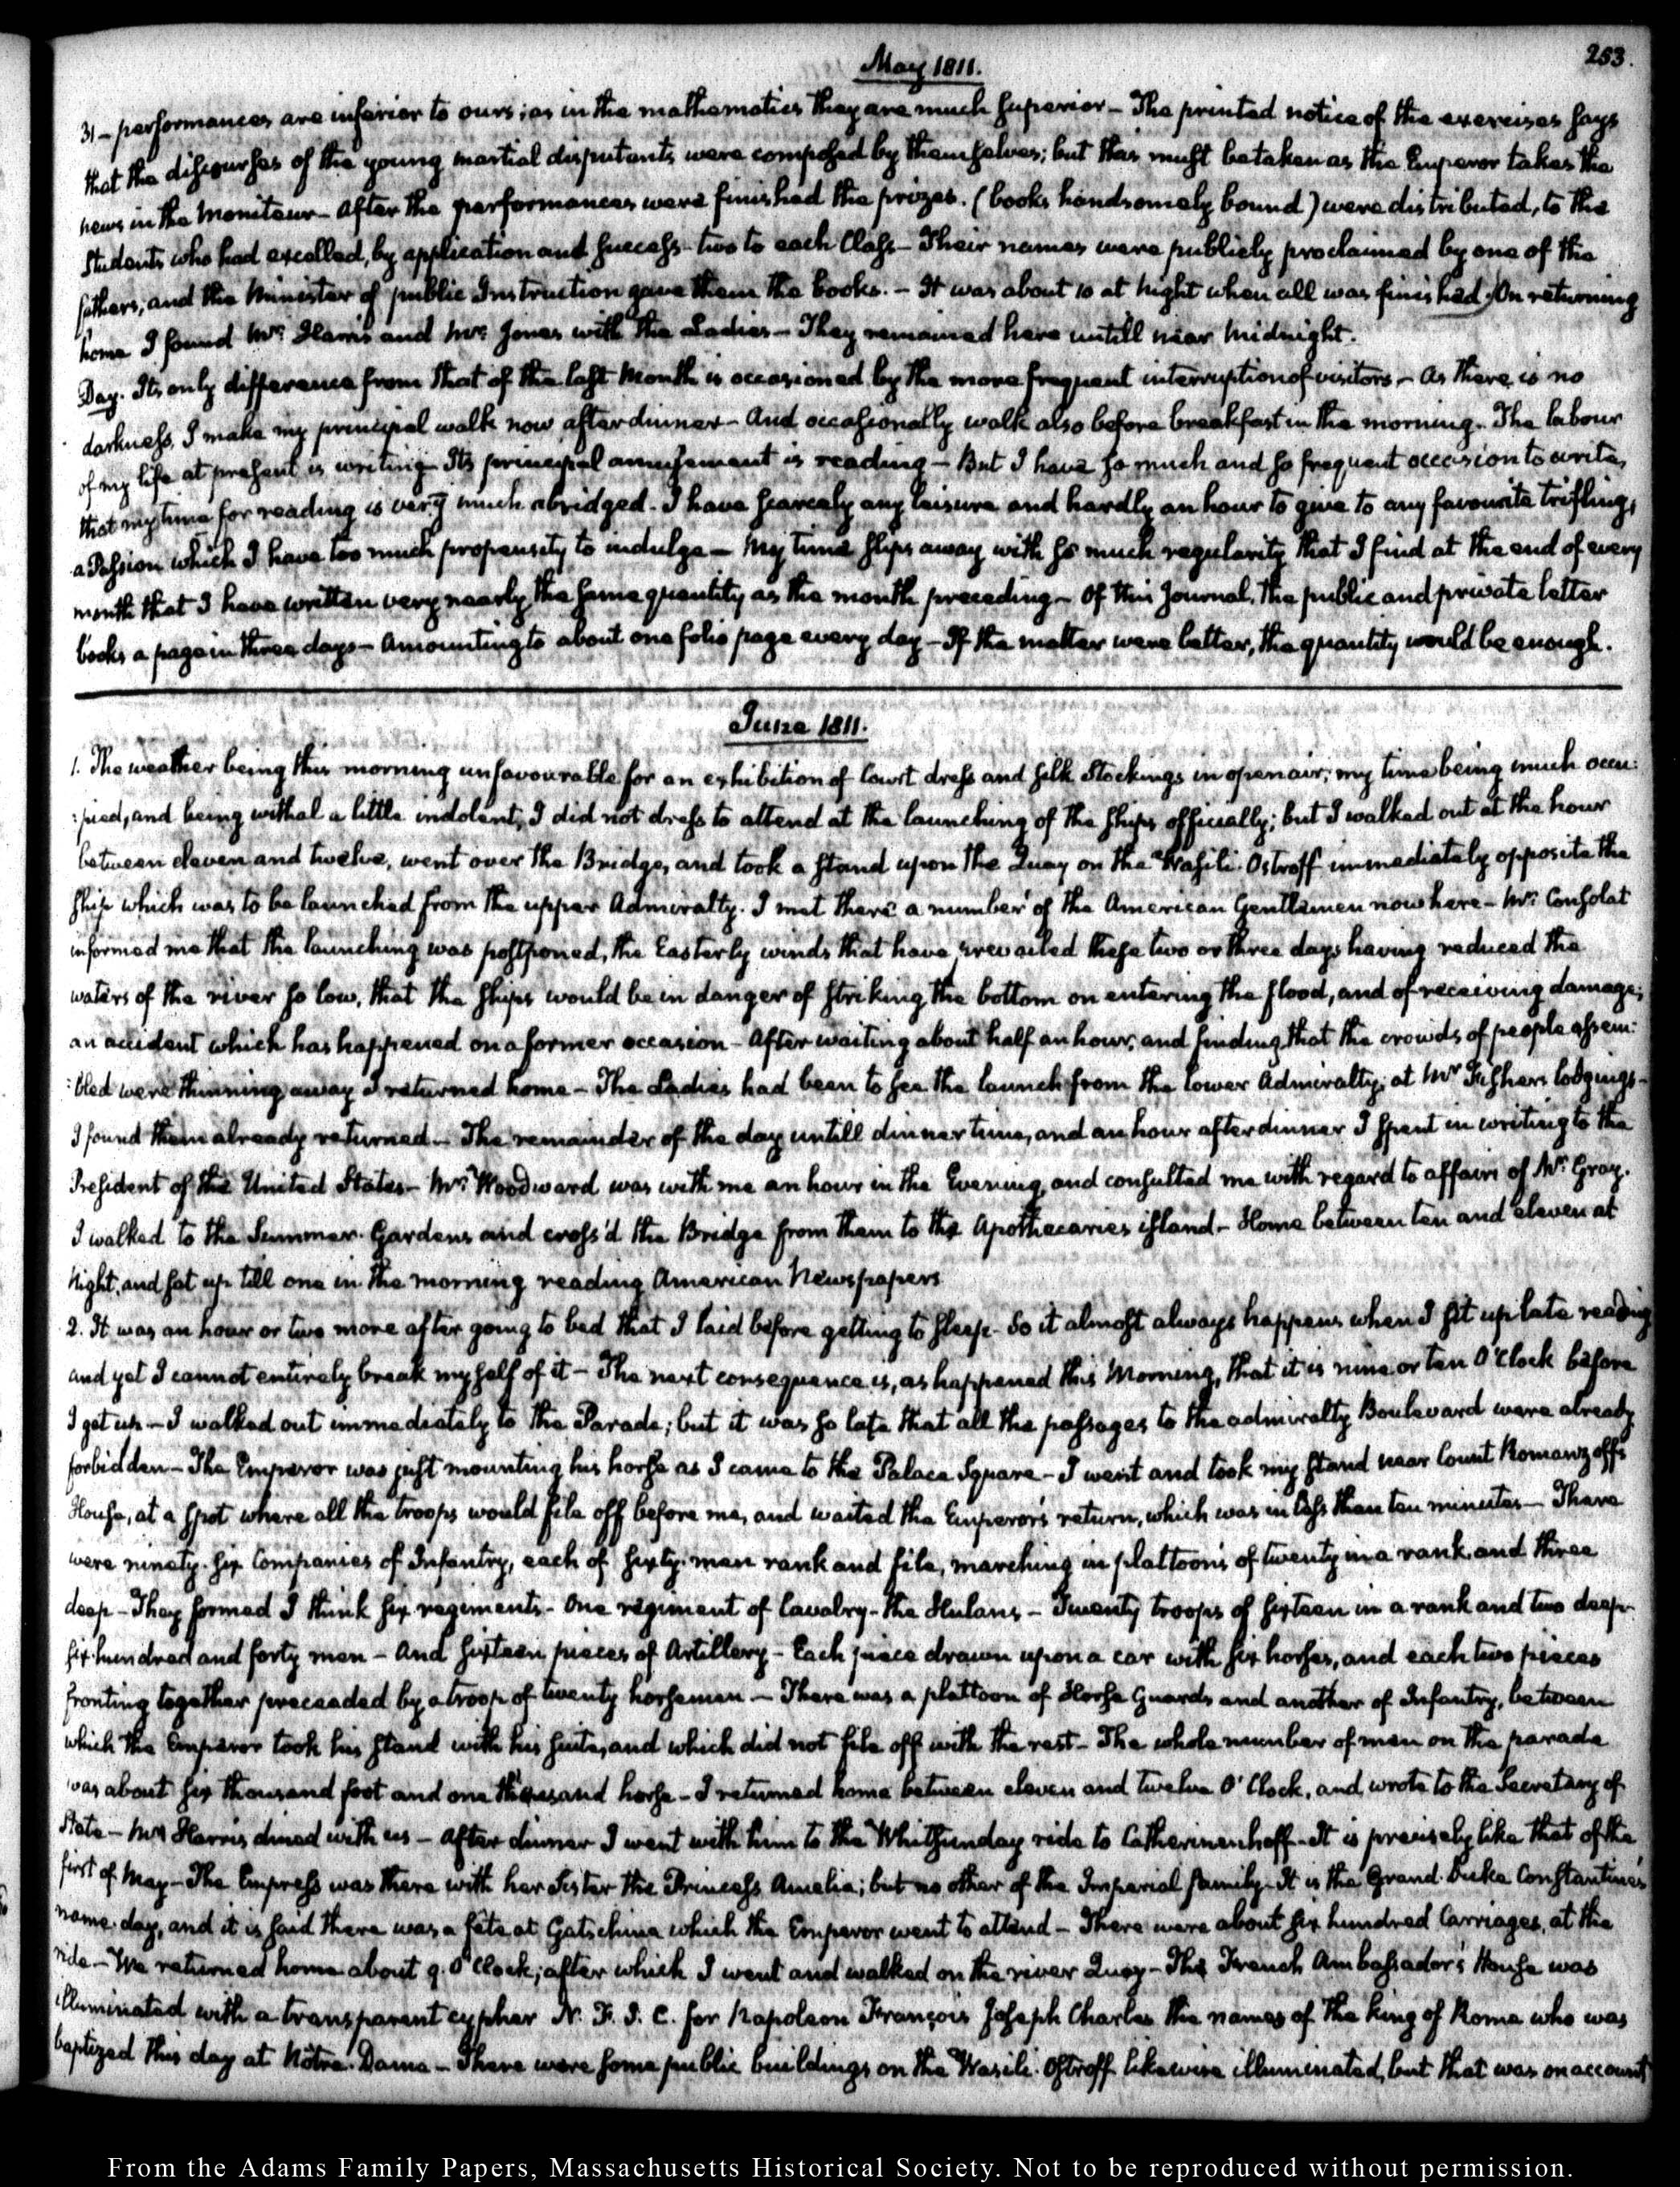 253.
May 1811.
31 – performances are inferior to ours; as in the mathematics they are much superior – The printed notice of the exercises says
that the discourses of the young martial disputants were composed by themselves; but this must be taken as the Emperor takes the
news in the Moniteur – After the performances were finished the prizes. (books handsomely bound) were distributed, to the
Students who had excelled, by application and success – two to each Class – Their names were publicly proclaimed by one of the
fathers, and the Minister of public Instruction gave them the books. – It was about 10 at Night when all was finished. On returning
home I found Mr: Harris and Mr: Jones with the Ladies – They remained here untill near Midnight.
Day. Its only difference from that of the last Month is occasioned by the more frequent interruption of visitors – As there is no
darkness, I make my principal walk now after dinner – And occasionally walk also before breakfast in the morning. The labour
of my life at present is writing – Its principal amusement is reading – But I have so much and so frequent occasion to write,
that my time for reading is very much abridged. I have scarcely any leisure and hardly an hour to give to any favourite trifling,
a Passion which I have too much propensity to indulge – My time slips away with so much regularity that I find at the end of every
month that I have written very nearly the same quantity as the month preceding – Of this Journal, the public and private letter
books a page in three days – Amounting to about one folio page every day – If the matter were better, the quantity would be enough.
June 1811.
1. The weather being this morning unfavourable for an exhibition of Court dress and silk Stockings in open air; my time being much occu:
:pied, and being withal a little indolent, I did not dress to attend at the launching of the ships officially; but I walked out at the hour
between eleven and twelve, went over the Bridge, and took a stand upon the Quay on the Wasili-Ostroff immediately opposite the
ship which was to be launched from the upper Admiralty. I met there a number of the American Gentlemen now here – Mr: Consolat
informed me that the launching was postponed, the Easterly winds that have prevailed these two or three days having reduced the
waters of the river so low, that the ships would be in danger of striking the bottom on entering the flood, and of receiving damage;
an accident which has happened on a former occasion – After waiting about half an hour, and finding that the crowds of people assem:
:bled were thinning away I returned home – The Ladies had been to see the launch from the lower Admiralty; at Mr Fishers lodgings –
I found them already returned – The remainder of the day untill dinner time, and an hour after dinner I spent in writing to the
President of the United States – Mr: Woodward was with me an hour in the Evening, and consulted me with regard to affairs of Mr: Gray.
I walked to the Summer-Gardens and cross'd the Bridge from them to the Apothecaries island – Home between ten and eleven at
Night, and sat up till one in the morning reading American Newspapers
2. It was an hour or two more after going to bed that I laid before getting to sleep – So it almost always happens when I sit up late reading
and yet I cannot entirely break myself of it – The next consequence is, as happened this Morning, that it is nine or ten O'Clock before
I get up – I walked out immediately to the Parade; but it was so late that all the passages to the admiralty Boulevard were already
forbidden – The Emperor was just mounting his horse as I came to the Palace Square – I went and took my stand near Count Romanzoffs
House, at a spot where all the troops would file off before me, and waited the Emperor's return, which was in less than ten minutes – There
were ninety-six Companies of Infantry, each of sixty-men rank and file, marching in plattoons of twenty in a rank and three
deep – They formed I think six regiments – One regiment of Cavalry – the Hulans – Twenty troops of sixteen in a rank and two deep
six-hundred and forty men – And sixteen pieces of Artillery – Each piece drawn upon a car with six horses, and each two pieces
fronting together preceeded by a troop of twenty horsemen – There was a plattoon of Horse Guards and another of Infantry, between
which the Emperor took his stand with his suite, and which did not file off with the rest – The whole number of men on the parade
was about six thousand foot and one thousand horse – I returned home between eleven and twelve O'Clock, and wrote to the Secretary of
State – Mr Harris dined with us – After dinner I went with him to the Whitsunday ride to Catherinenhoff – It is precisely like that of the
first of May – The Empress was there with her Sister the Princess Amelia; but no other of the Imperial family – It is the Grand-Duke Constantine's
name-day, and it is said there was a fête at Gatschina which the Emperor went to attend – There were about six hundred Carriages, at the
ride – We returned home about 9. O'Clock; after which I went and walked on the river Quay – The French Ambassador's House was
illuminated with a transparent cypher N. F. J. C. for Napoleon François Joseph Charles the names of the King of Rome who was
baptized this day at Nôtre-Dame – There were some public buildings on the Wasili-Ostroff likewise illuminated, but that was on account
From the Adams Family Papers, Massachusetts Historical Society. Not to be reproduced without permission.